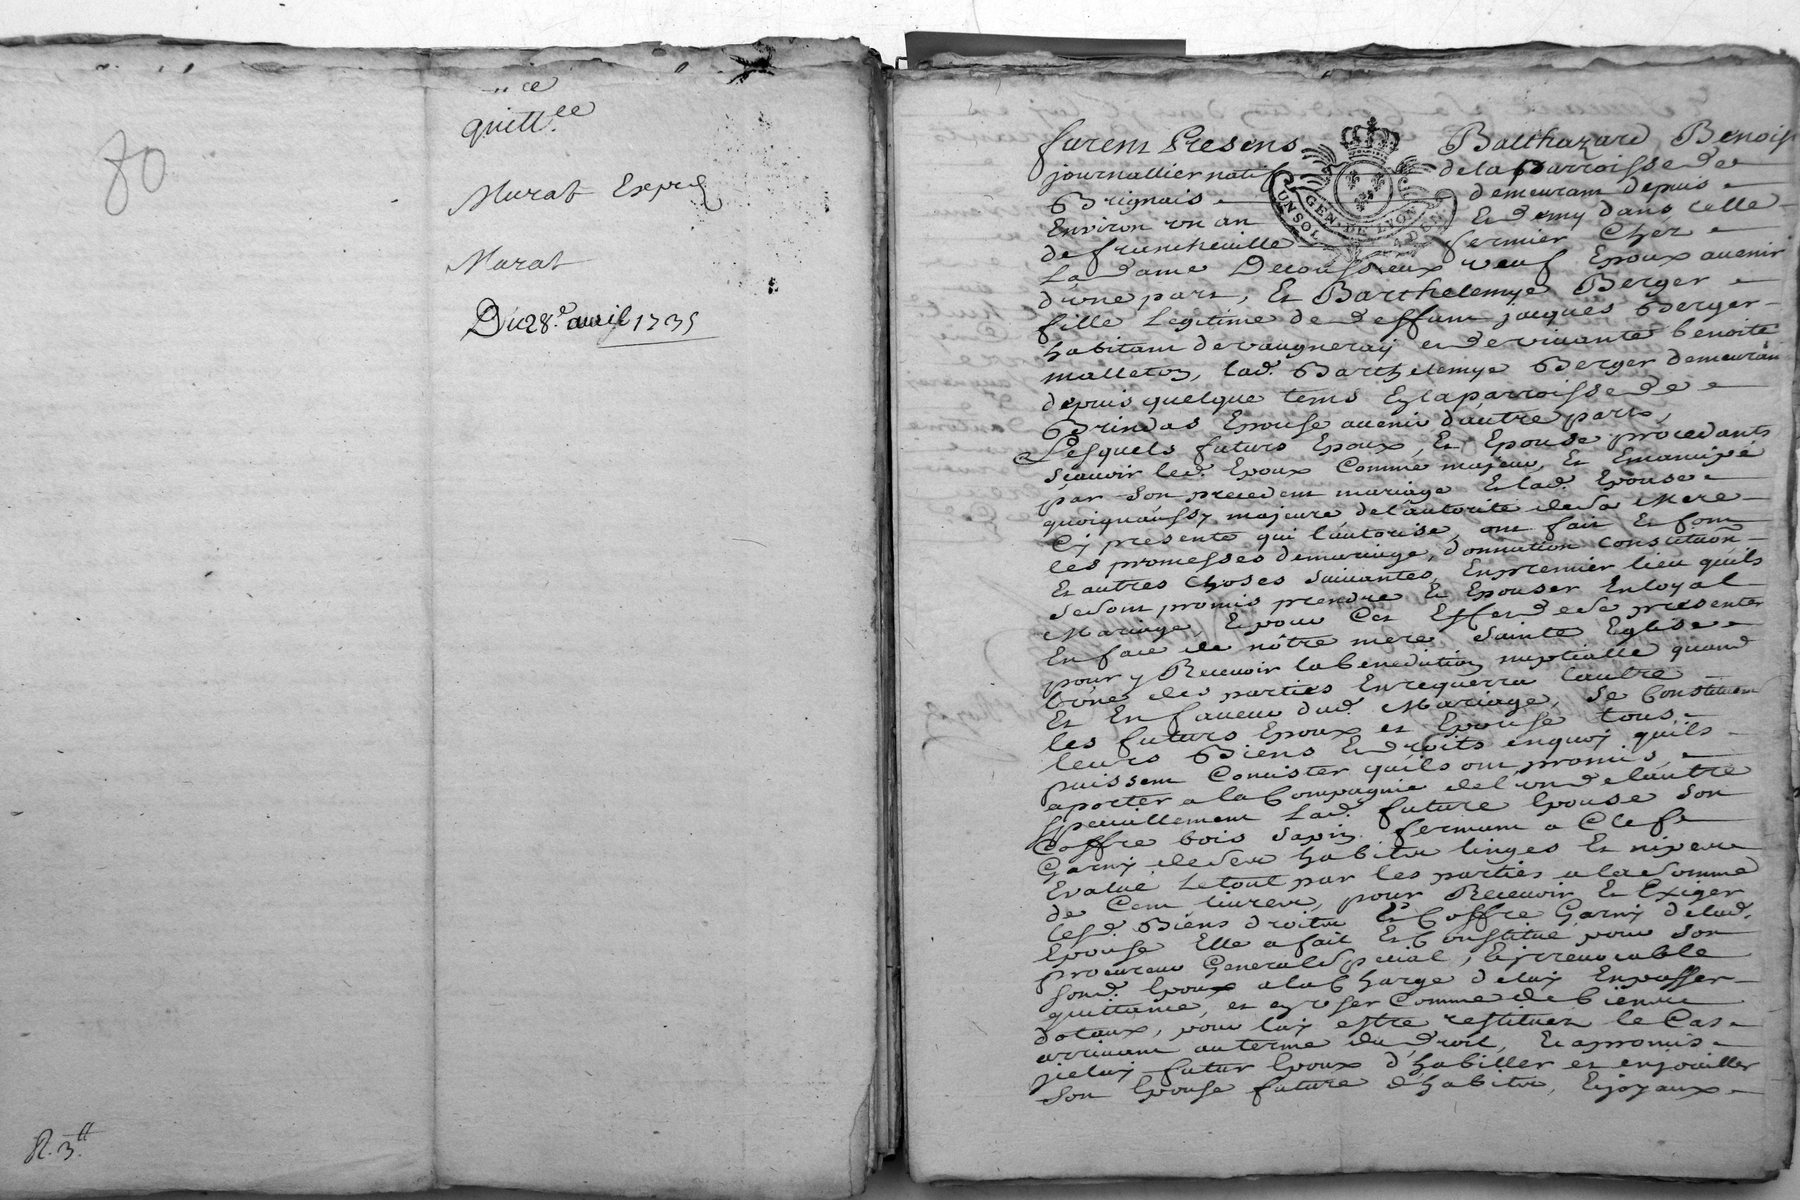 80
quitt.ce
Murat Expes
Murat
Du 28.e avril 1735
R. 3.tt
furent Presens Balthazard Benoist
journallier natif de la Parroisse de
Brignais demeurant depuis
Environ un an Et demy dans celle
de francheville fermier Chez
La dame Decousseux veuf Epoux avenir
d'une part, Et Barthelemye Berger
fille Legitime de deffunt jacques Berger
habitant de vaugneray et de vivante benoite
malleton, lad. Barthelemye Berger demeurant
depuis quelque tems En la parroisse de
Brindas Epouse avenir d'autre part,
Lesquels futurs Epoux, Et Epouse procedants
scavoir led. Epoux Comme majeur, Et Emancipé
par son precedent mariage Et lad. Epouse
quoiqu'aussy majeure de l'autorité de sa Mere
Cy presente qui l'autorise, ont fait Et font
les promesses de mariage, donnation constitution
Et autres choses suivantes, En premier lieu qu'ils
se sont promis prendre Et Epouser En loyal
Mariage, Et pour Cet Effet de se presenter
En face de nôtre mere Sainte Eglise
pour y Recevoir la benediction nuptialle quand
l'une des parties En requerra l'autre
Et En faveur dud. Mariage, se Constituent
les futurs Epoux et Epouse tous
leurs Biens Et droits en quoy qu'ils
puissent Consister qu'ils ont promis,
aporter a la Compagnie de l'un de l'autre
specialement Lad. future Epouse son
Coffre bois sapin fermant a Clef
Garny de ses habits linges Et nipes
Evalué Le tout par les parties a la somme
de Cent livres, pour Recevoir Et Exiger
lesd. Biens droits Et Coffre Garny de lad.
Epouse Elle a fait Et Constitué pour son
procureur General special, Et irrevocable
sond. Epoux a la Charge de luy En passer
quittance, et en user Comme de biens
dotaux, pour luy estre restitués le Cas
arrivant au terme du droit, Et a promis
iceluy futur Epoux d'habiller et enjoailler
son Epouse future d'habits, Et joyaux